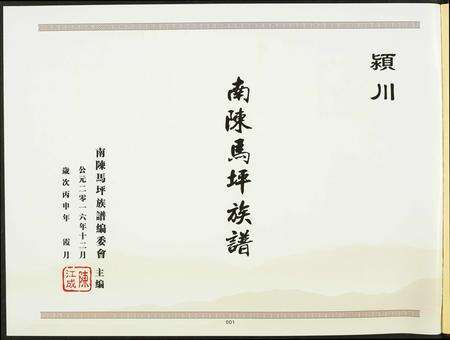 颍川
南陳馬坪族譜
南陳馬坪族譜編委會 主編
公元二零一六年十二月
歲次丙申年 霞月
陳江成
001